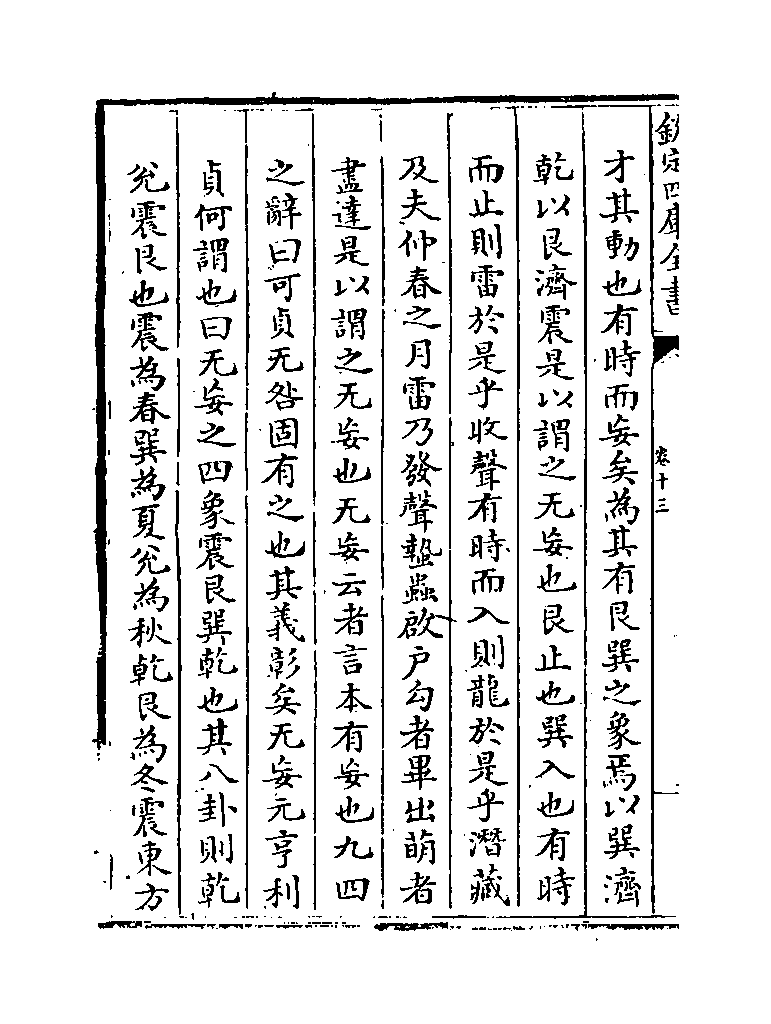 欽定四庫全書
卷十三
才其動也有時而妄矣為其有艮巽之象焉以巽濟
乾以艮濟震是以謂之无妄也艮止也巽入也有時
而止則雷於是乎收聲有時而入則龍於是乎潛藏
及夫仲春之月雷乃發聲蟄蟲啟戶勾者畢出萌者
盡達是以謂之无妄也无妄云者言本有妄也九四
之辭曰可貞无咎固有之也其義彰矣无妄元亨利
貞何謂也曰无妄之四象震艮巽乾也其八卦則乾
兊震艮也震為春巽為夏兊為秋乾艮為冬震東方